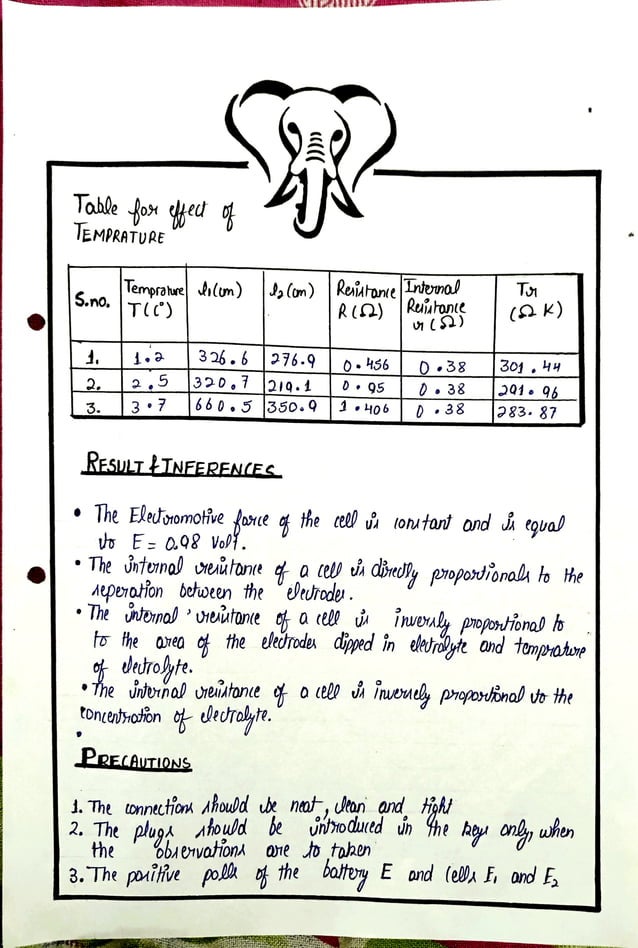 Table for effect of
TEMPRATURE
S.no. Temprature T(C°) l₁(cm) l₂(cm) Resistance R(Ω) Internal Resistance r(Ω) Tr (Ω K)
1. 1.2 326.6 276.9 0.456 0.38 301.44
2. 2.5 320.7 219.1 0.95 0.38 291.96
3. 3.7 660.5 350.9 1.406 0.38 283.87
RESULT & INFERENCES
• The Electromotive force of the cell is constant and is equal
to E = 0.98 Volt.
• The internal resistance of a cell is directly proportionals to the
seperation between the electrodes.
• The internal resistance of a cell is inversly proportional to
to the area of the electrodes dipped in electrolyte and temprature
of electrolyte.
• The internal resistance of a cell is inversely proportional to the
concentration of electrolyte.
•
PRECAUTIONS
1. The connections should be neat, clean and tight
2. The plugs should be introduced in the keys only, when
the observations are to taken
3. The positive polls of the battery E and cells E₁ and E₂